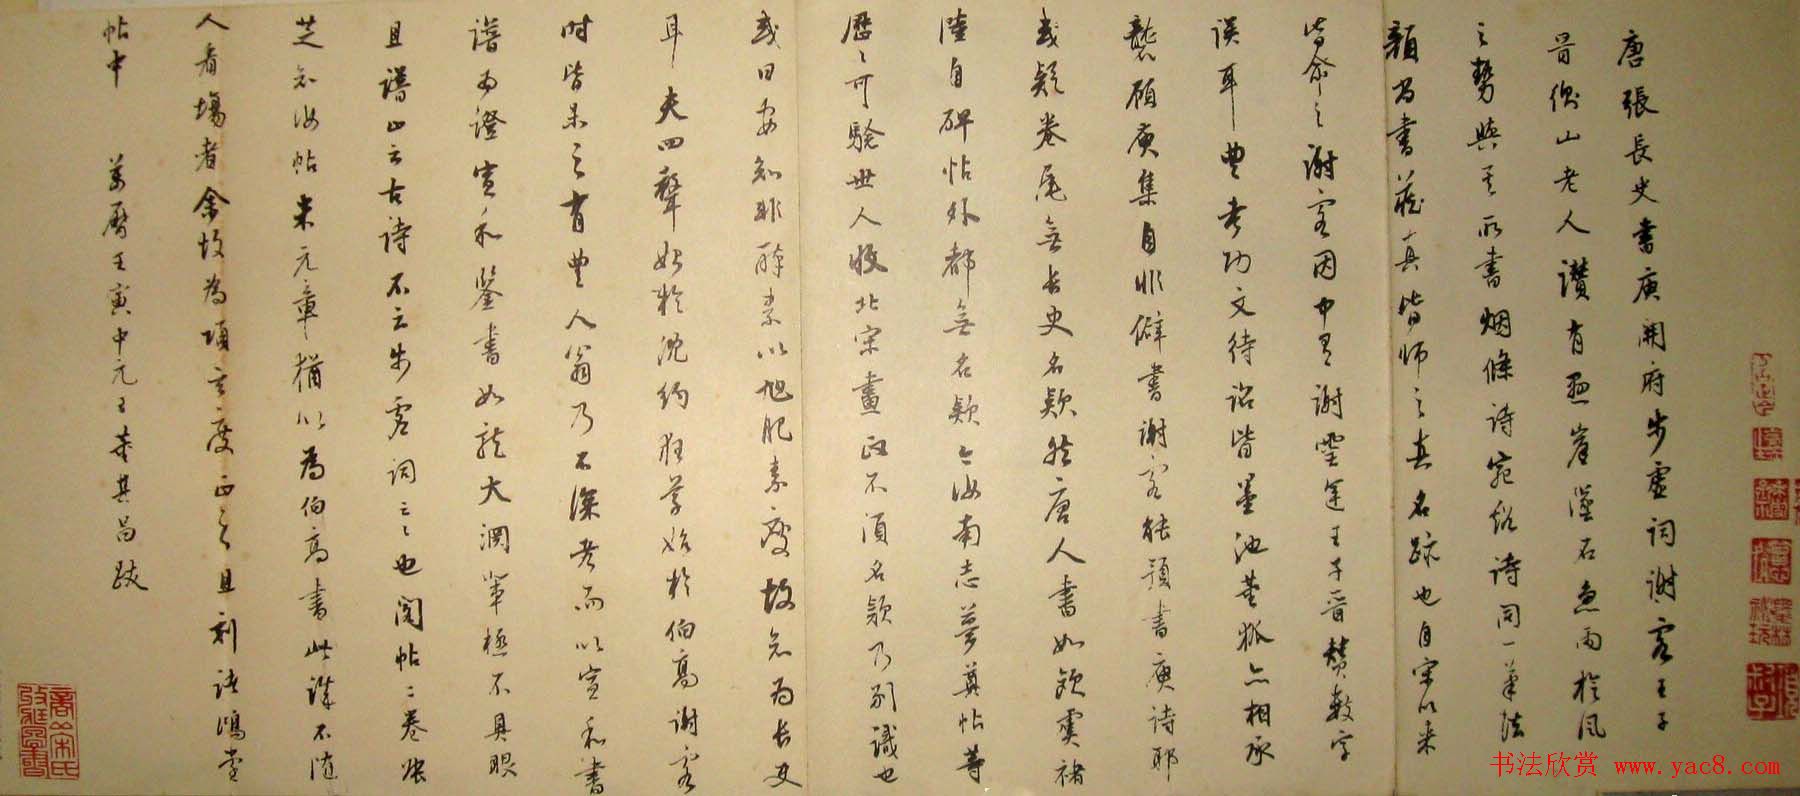 唐張長史書庾開府步虛詞謝客王子
晉衡山老人讚有懸崖墜石急雨旋風
之勢與其所書烟條詩宛谿詩同一筆法
顏尚書藏真皆師之真名跡也自宋以來
皆命之謝客因中有謝靈運王子晉贊數字
誤耳豐考功文待詔皆墨池董狐亦相承
襲顧庾集自非僻書謝客能預書庾詩耶
或疑卷尾無長史名款然唐人書如歐虞褚
陸自碑帖外都無名款今汝南志夢奠帖等
歷歷可驗世人收北宋畫政不須名款乃別識也
或曰安知非醉素以旭肥素瘦故知為長史
耳夫四聲始於沈約狂草始於伯高謝客
時皆未之有豐人翁乃不深考而以宣和書
譜為證宣和鑒書如龍大淵輩極不具眼
且譜止云古詩不云步虛詞云云也閣帖二卷張
芝知汝帖米元章猶以為伯高書此誰不隨
人看場者余故為項玄度正之且刻諸鴻堂
帖中 萬曆壬寅中元日董其昌跋
书法欣赏 www.yac8.com